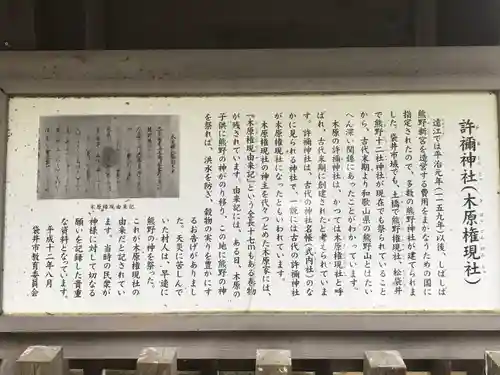 許禰神社(木原権現社)
遠江では平治元年(一一五九年)以後、しばしば
熊野新宮を造営する費用をまかなうための国に
指定されたので、多数の熊野神社が建てられま
した。袋井市域でも、土橋で熊野権現社、松袋井
で熊野十二社神社が現在でも祭られていること
から、古代末期より和歌山県の熊野山とはたい
へん深い関係にあったことがわかっています。
木原の許禰神社は、かつては木原権現社と呼
ばれ、古代末期に創建されたと考えられていま
す。許禰神社は、古代の神社名帳(式内社)のな
かに見られる神社で、一説には古代の許禰神社
が木原権現社になったともいわれています。
木原権現社の神主を代々つとめた木原家には、
『木原権現由来記』という全長十七mもある巻物
が残されています。由来記には、ある日、木原の
子供に熊野の神がのり移り、この地に熊野の神
を祭れば、洪水を防ぎ、穀物の実りを豊かにす
るお告げがありまし
た。天災に苦しんで
いた村人は、早速に
熊野の神を祭った。
これが木原権現社の
由来だと記されてい
ます。当時の民衆が
神様に対して切なる
願いを記録した貴重
な資料となっています。
平成十二年八月
袋井市教育委員会
木原権現由来記